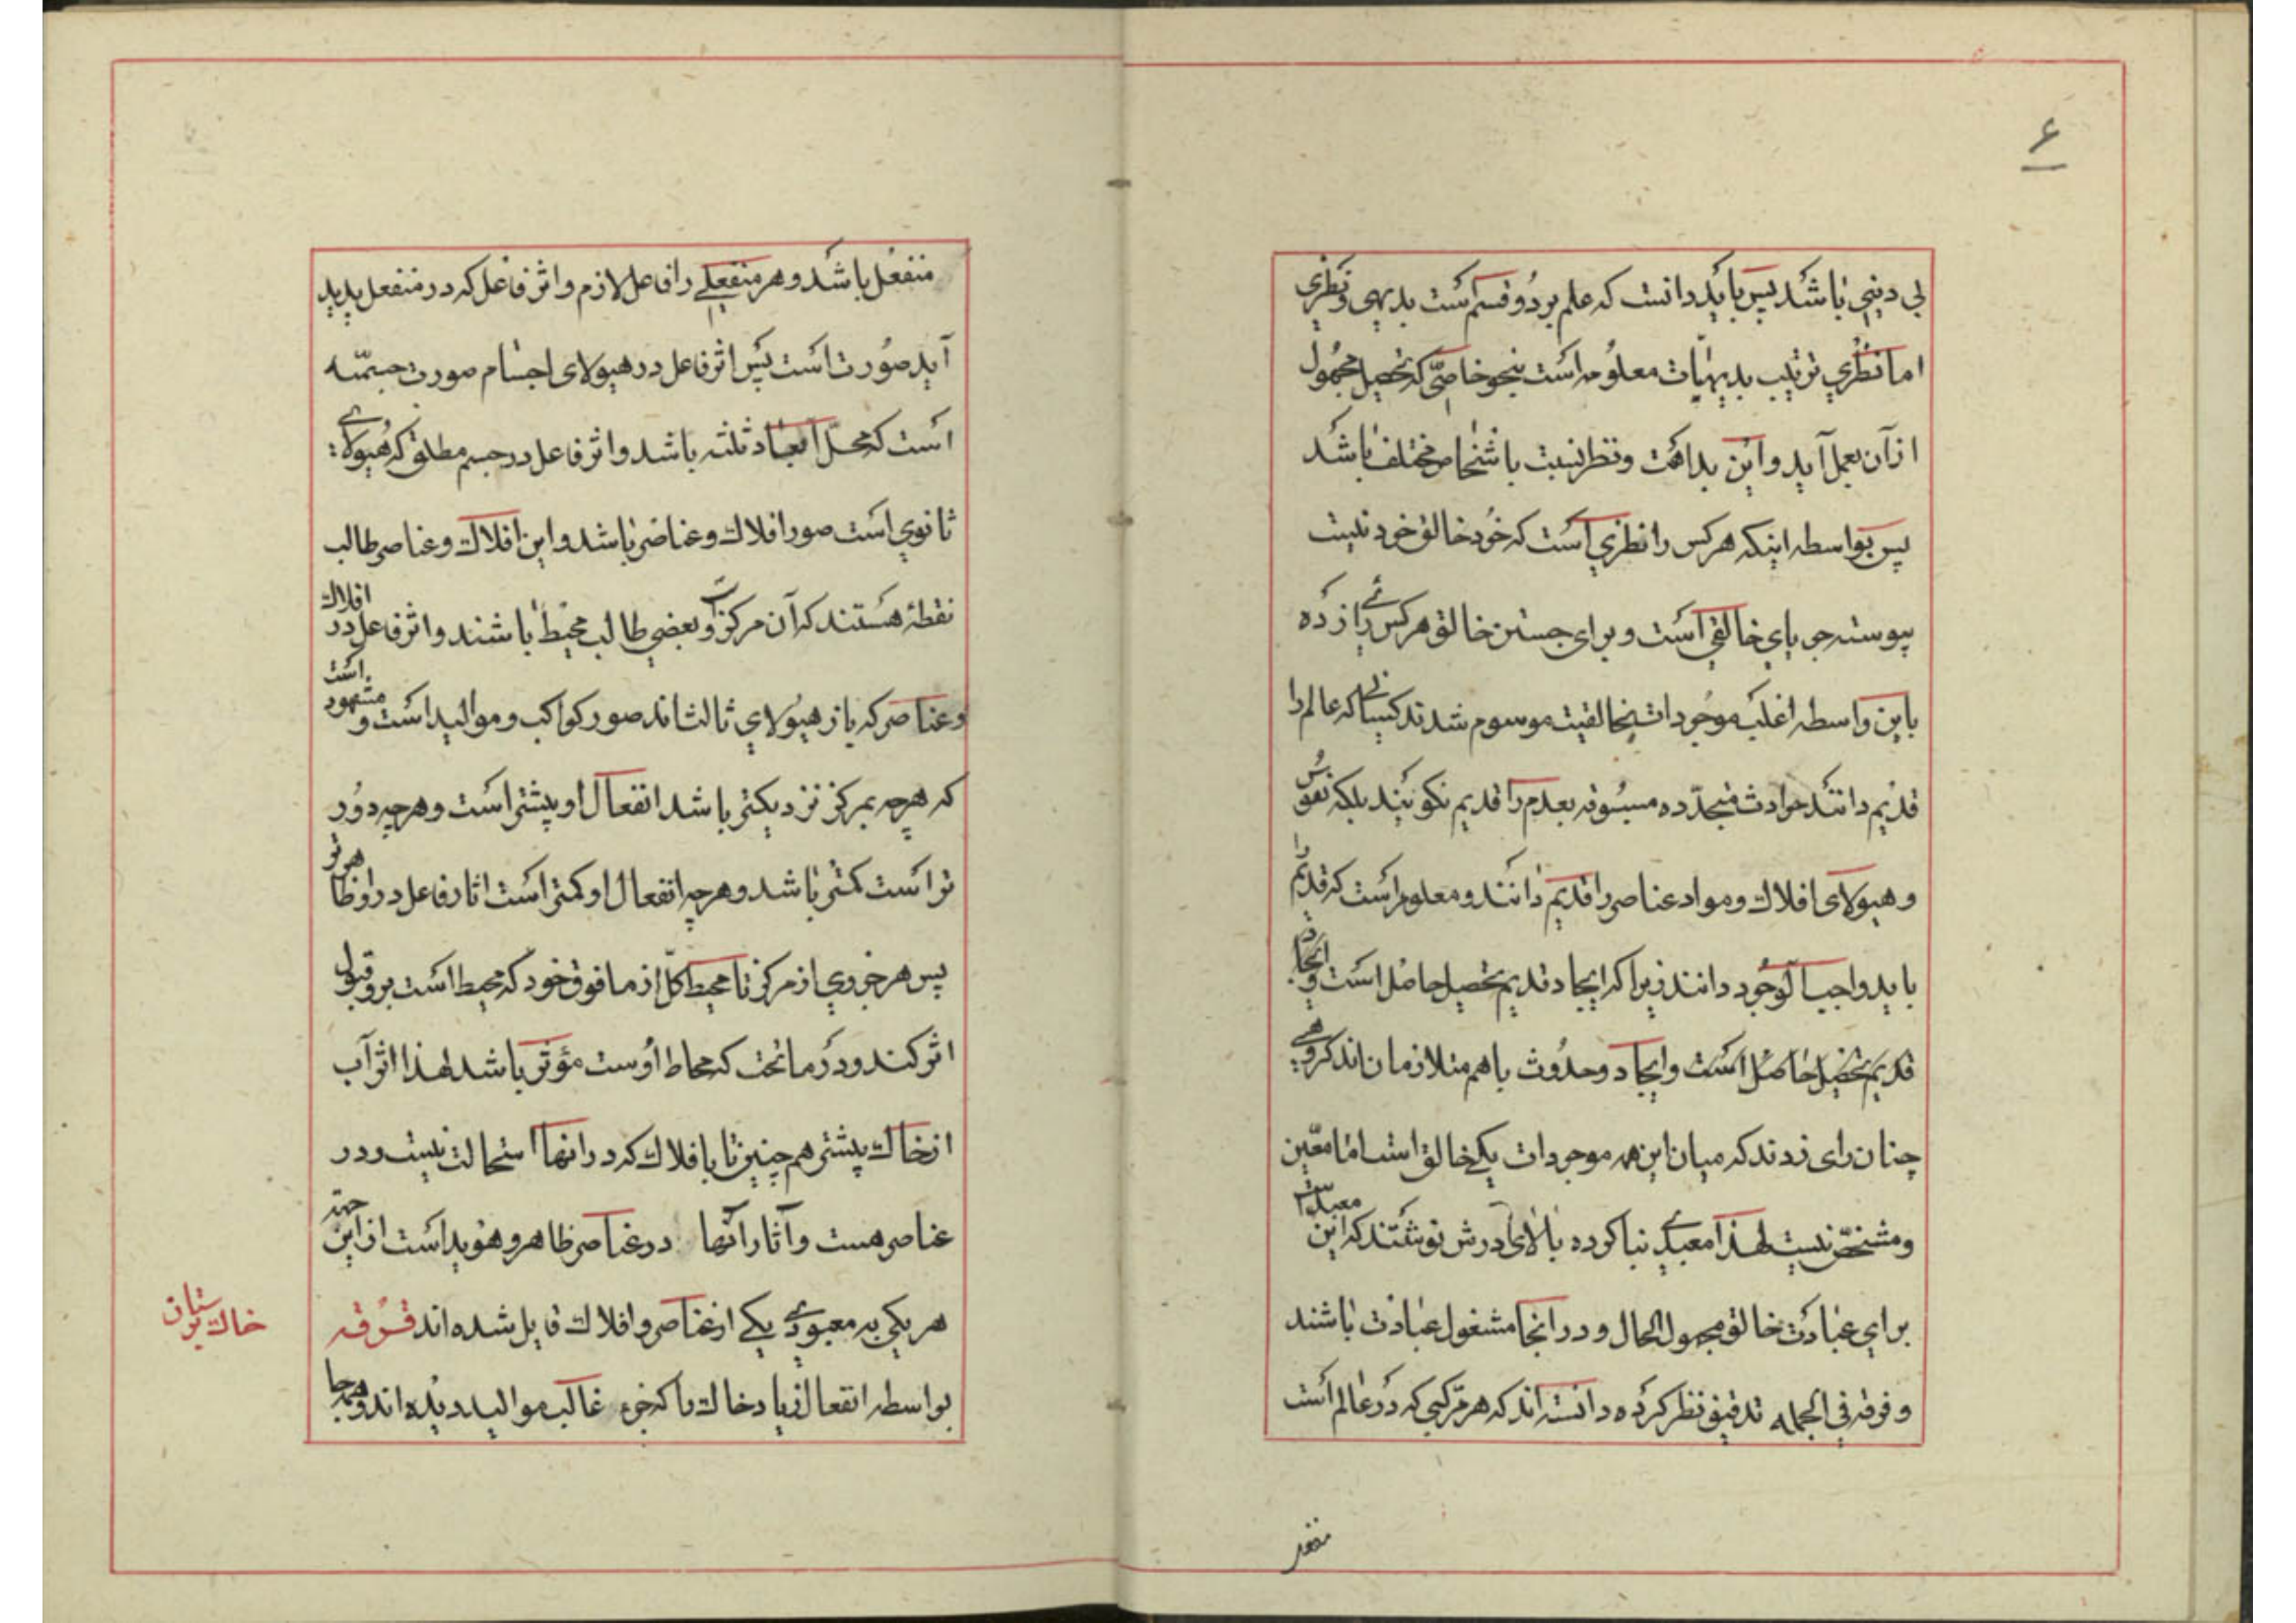 ۶
بی دینی باشد پس باید دانست که علم بر دو قسم است بدیهی و نظری
اما نظری ترتیب بدیهیات معلومه است بنحو خاصی که تحصیل مجهول
از آن بعمل آید و این بداهت و نظر نسبت باشخاص مختلف باشد
پس بواسطه اینکه هر کس را نظری است که خود خالق خود نیست
پیوسته جویای خالقی است و برای جستن خالق هر کس رائی زده
باین واسطه اغلب موجودات بخالقیت موسوم شدند کسانی که عالم را
قدیم دانند حوادث متجدده مسبوقه بعدم را قدیم نکویند بلکه نفوس
و هیولای افلاک و مواد عناصر را قدیم دانند و معلوم است که قدیم را
باید واجب الوجود دانند زیرا که ایجاد قدیم تحصیل حاصل است و ایجاد
قدیم تحصیل حاصل است و ایجاد و حدوث باهم متلازمان اند کروهی
چنان رای زدند که میان این همه موجودات یکی خالق است اما معین
و مشخص نیست لهذا معبدی بنا کرده بالای درش نوشتند که این معبدیست
برای عبادت خالق مجهول الحال و در انجا مشغول عبادت باشند
و فرقه فی الجمله تدقیق نظر کرده دانسته اند که هر مرکبی که در عالم است
منفعل
منفعل باشد و هر منفعلی را فاعل لازم و اثر فاعل که در منفعل پدید
آید صورت است پس اثر فاعل در هیولای اجسام صورت جسمیّه
است که محل ابعاد ثلثه باشد و اثر فاعل در جسم مطلق که هیولای
ثانوی است صور افلاک و عناصر باشد و این افلاک و عناصر طالب
نقطهٔ هستند که آن مرکز است و بعضی طالب محیط باشند و اثر فاعل در افلاک
و عناصر که باز هیولای ثالث اند صور کواکب و موالید است و مشهود است
که هرچه بمرکز نزدیکتر باشد انفعال او بیشتر است و هرچه دور
تر است کمتر باشد و هرچه انفعال او کمتر است اثار فاعل در او ظاهرتر
پس هر جزوی از مرکز تا محیط کل از مافوق خود که محیط است برو قبول
اثر کند و در ماتحت که محاط اوست مؤثر باشد لهذا اثر آب
از خاک بیشتر همچنین تا بافلاک که در انها استحالت نیست و در
عناصر هست و آثار آنها در عناصر ظاهر و هویدا است از این جهة
هر یکی به معبودی یکی از عناصر و افلاک قایل شده اند فرقه
خاک پرستان
بواسطه انفعال زیاد خاک را که جزء غالب موالید دیده اند و همه جا